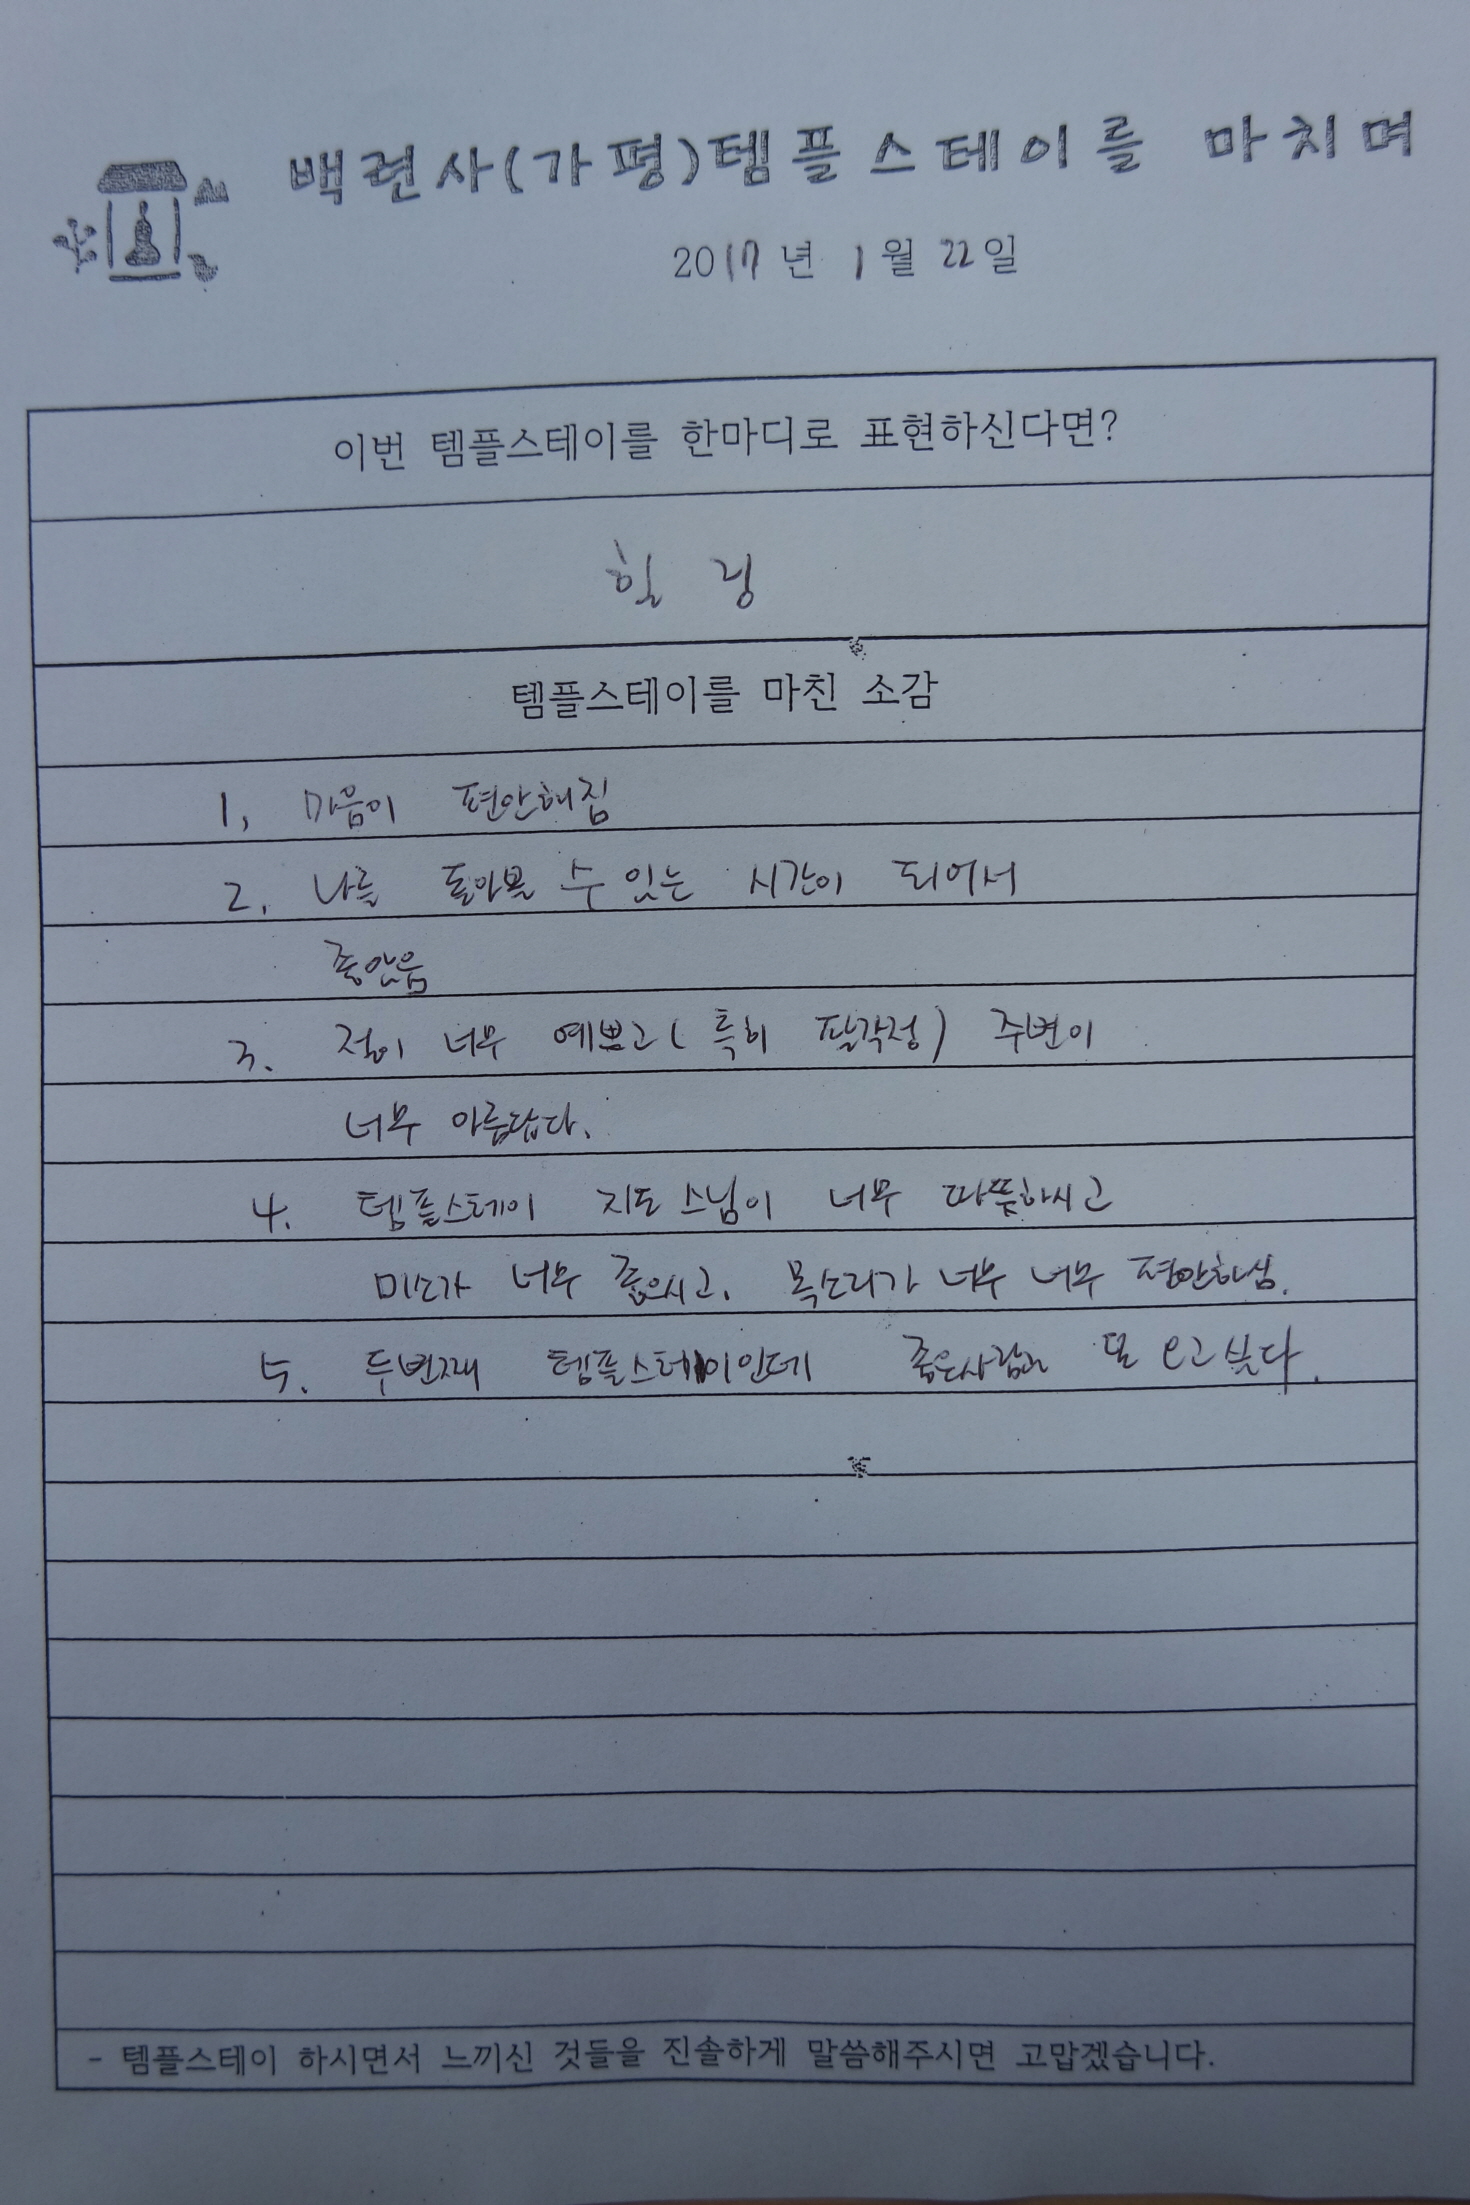 백련사(가평)템플스테이를 마치며
2017년 1월 22일
이번 템플스테이를 한마디로 표현하신다면?
힐링
템플스테이를 마친 소감
1, 마음이 편안해짐
2, 나를 돌아볼 수 있는 시간이 되어서
좋았음
3. 절이 너무 예쁘고 (특히 팔각정) 주변이
너무 아름답다.
4. 템플스테이 지도 스님이 너무 따뜻하시고
미소가 너무 좋으시고, 목소리가 너무 너무 편안하심.
5. 두번째 템플스테이인데 좋은사람과 또 오고싶다.
- 템플스테이 하시면서 느끼신 것들을 진솔하게 말씀해주시면 고맙겠습니다.